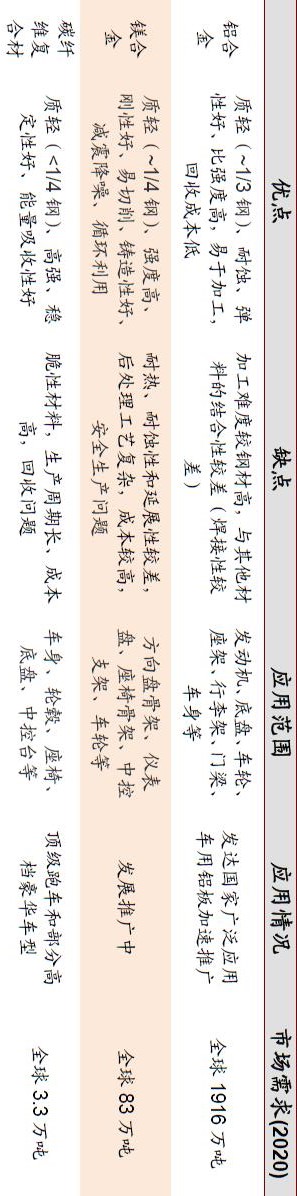 优点
缺点
应用范围
应用情况
市场需求(2020)
铝合
金
质轻（~1/3 钢）、耐蚀、弹
性好、比强度高，易于加工，
回收成本低
加工难度较钢材高，与其他材
料的结合性较差（焊接性较
差）
发动机、底盘、车轮、
座架、行李架、门梁、
车身等
发达国家广泛应用
车用铝板加速推广
全球 1916 万吨
镁合
金
质轻（~1/4 钢）、强度高、
刚性好、易切削、铸造性好、
减震降噪、循环利用
耐热、耐蚀性和延展性较差，
后处理工艺复杂，成本较高，
安全生产问题
方向盘骨架、仪表
盘、座椅骨架、中控
支架、车轮等
发展推广中
全球 83 万吨
碳纤
维复
合材
质轻（<1/4 钢）、高强、稳
定性好、能量吸收性好
脆性材料，生产周期长、成本
高，回收问题
车身、轮毂、座椅、
底盘、中控台等
顶级跑车和部分高
档豪华车型
全球 3.3 万吨